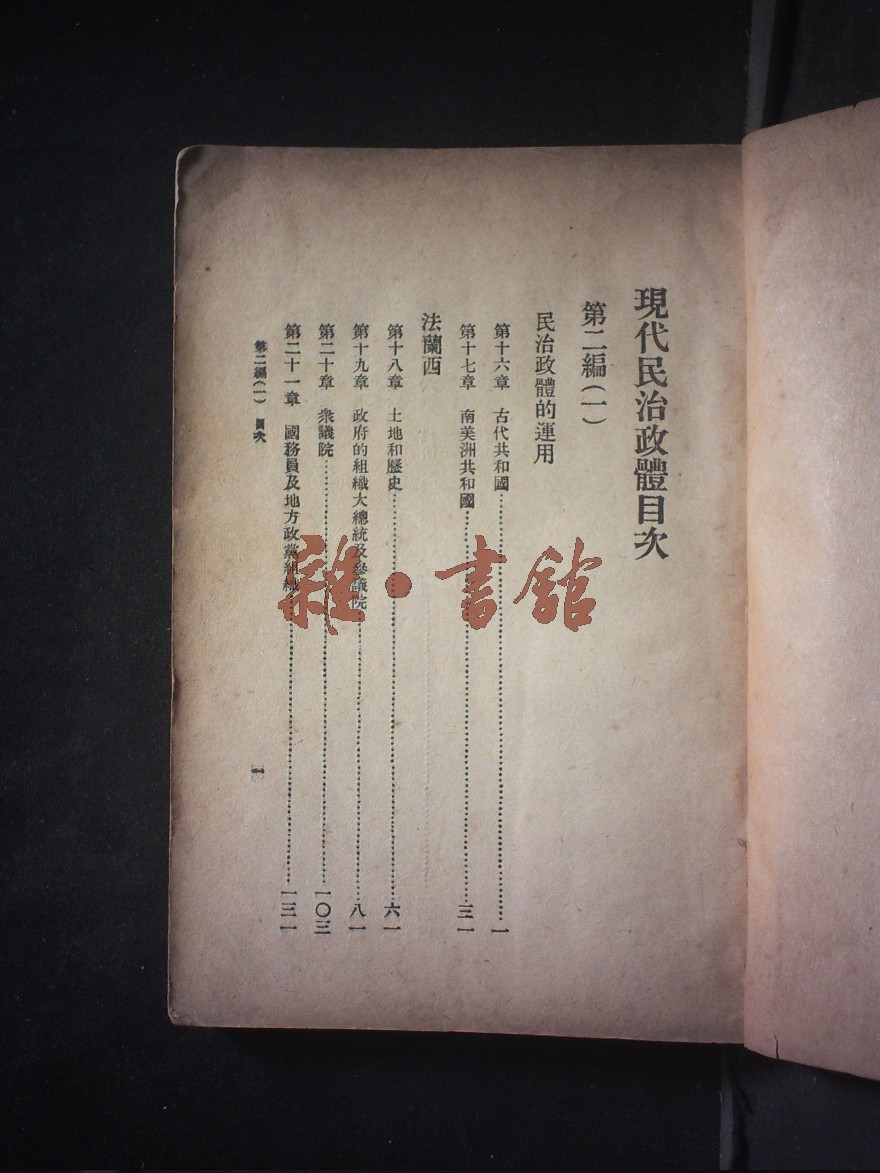 現代民治政體目次
第二編(一)
民治政體的運用
第十六章 古代共和國……一
第十七章 南美洲共和國……三一
法蘭西
第十八章 土地和歷史……六一
第十九章 政府的組織大總統及參議院……八一
第二十章 衆議院……一〇三
第二十一章 國務員及地方政黨組織……一三一
第二編(一) 目次
一
雜·書館